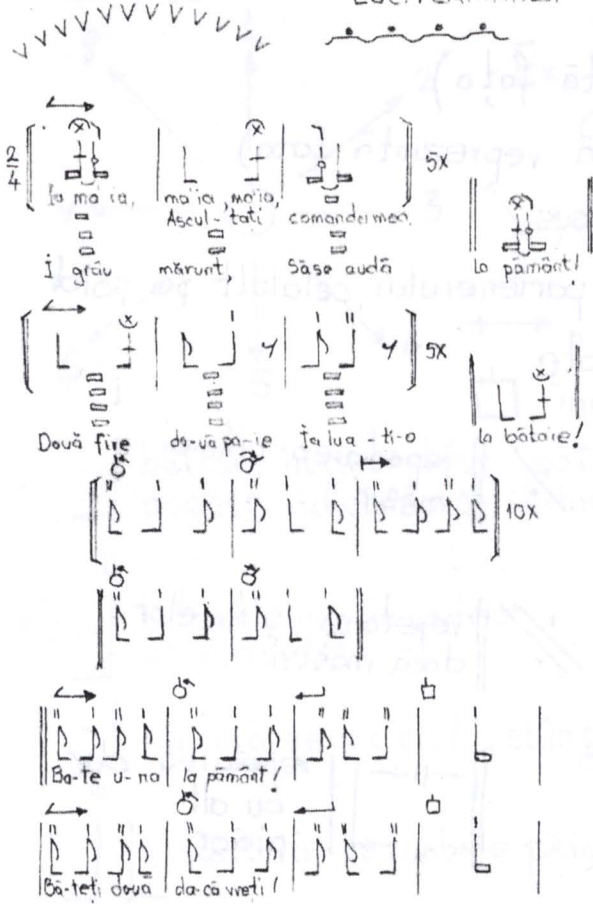 2/4
Ia maia, maia, maia, 5x
Ascul-tati comanda mea.
Î grâu mărunt, Săse audă La pământ!
5x
Două fire da-uă pa-ie Ia lua-ti-o La bătaie!
10x
Ba-te u-na la pământ!
Bă-teți două da-că vreți!